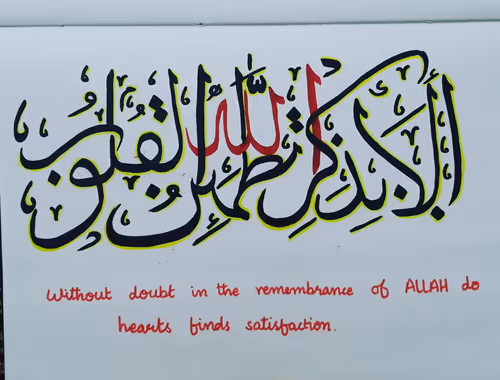 ألا بذكر الله تطمئن القلوب
Without doubt in the remembrance of ALLAH do
hearts finds satisfaction.